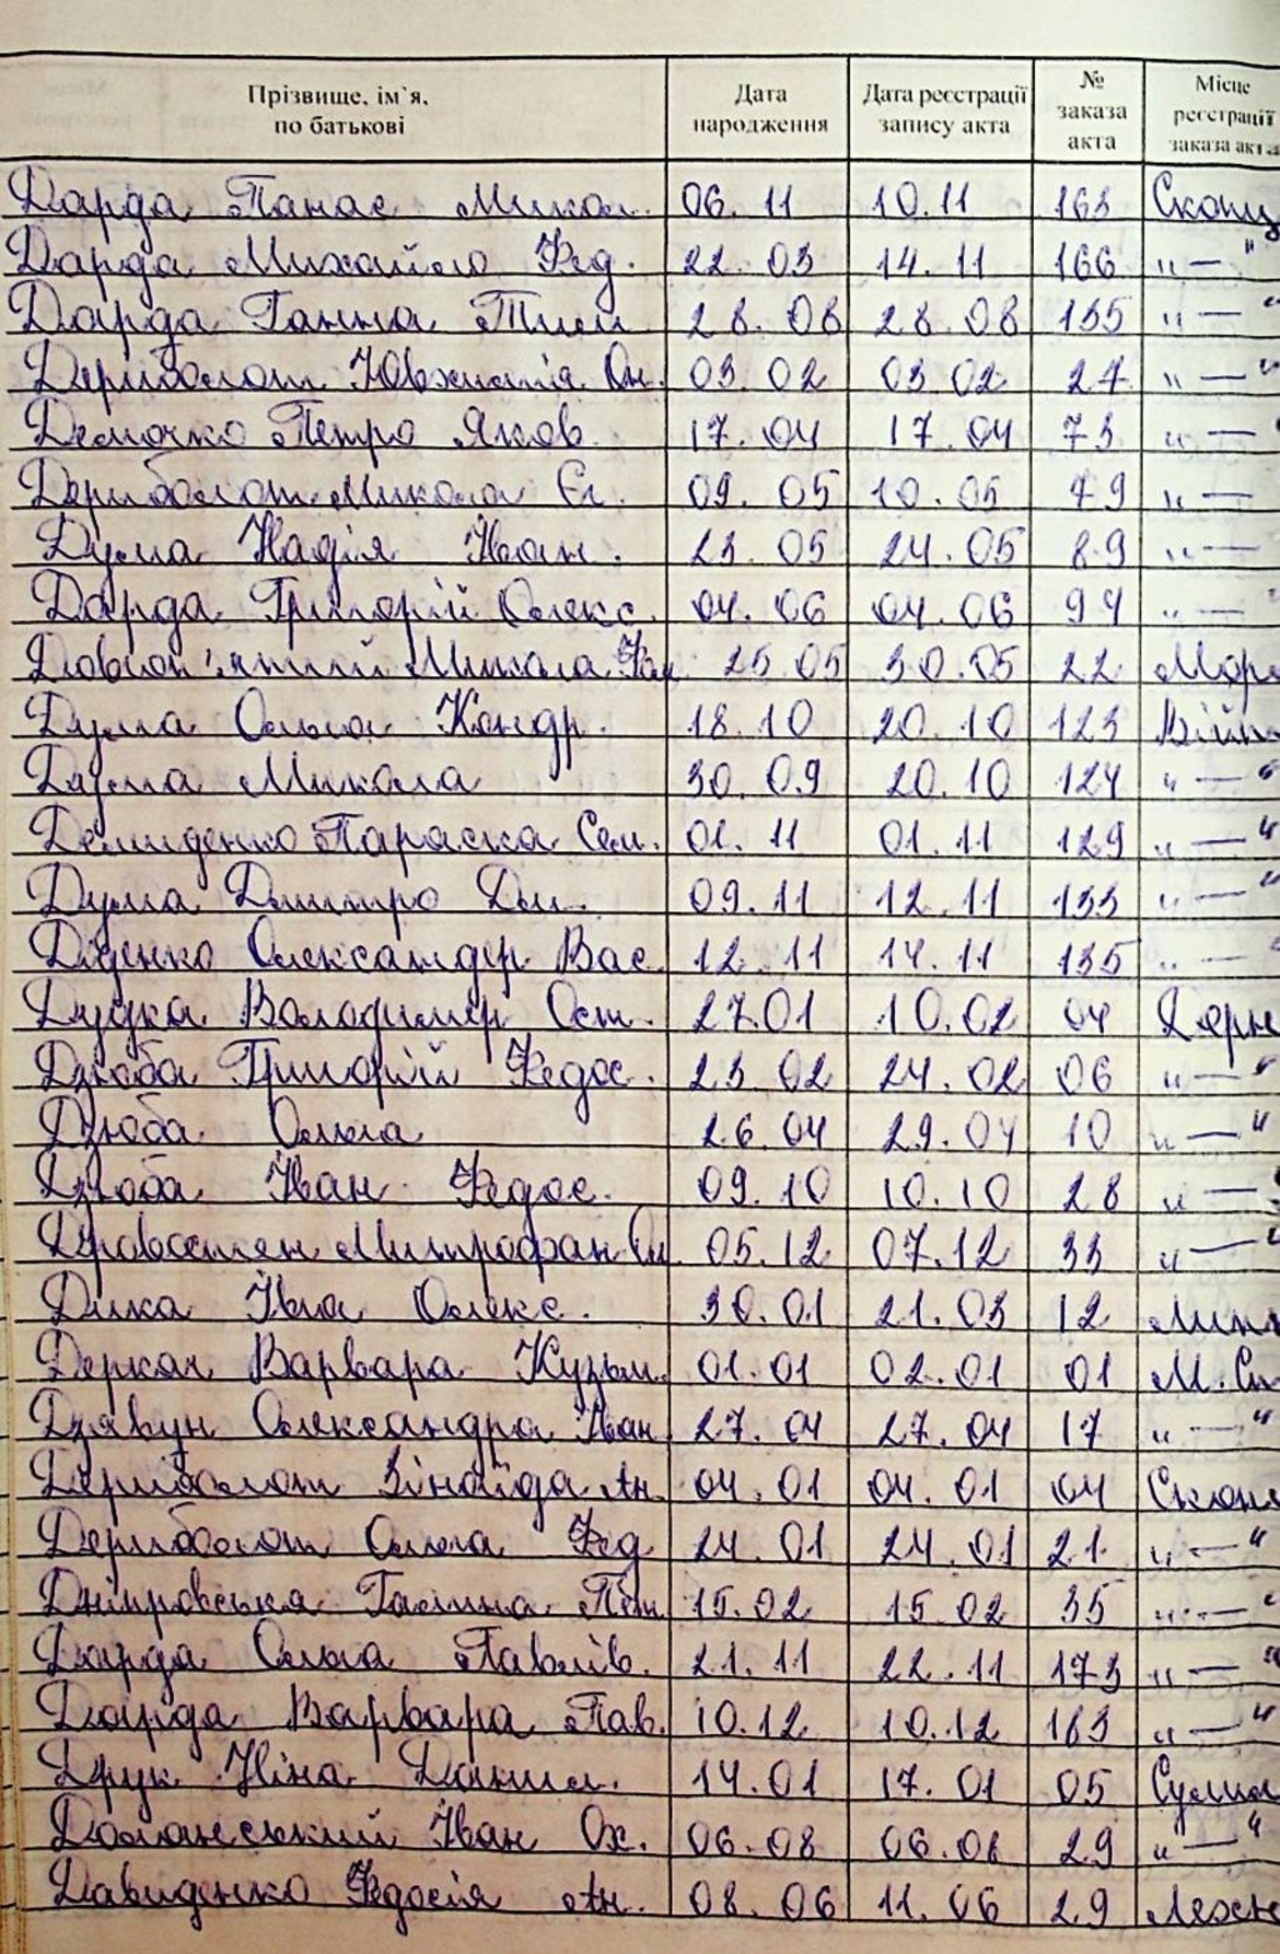 Прізвище, ім`я, по батькові Дата народження Дата реєстрації запису акта № заказа акта Місце реєстрації заказа акта
Дарда Панас Микол. 06.11 10.11 163
Дарда Михайло Фед. 22.03 14.11 166 " — "
Дарда Ганна Тим 28.08 28.08 135 " — "
Дериболот Ювхимія Он. 03.02 03.02 27 " — "
Демочко Петро Яков. 17.04 17.04 73 " — "
Дериболот Микола Єг. 09.05 10.05 79 " —
Дума Надія Іван. 23.05 24.05 89 " —
Дарда Григорій Олекс. 04.06 04.06 94 " — "
Микола 25.05 30.05 22
Дума Ольга Кондр. 18.10 20.10 123
Дума Микола 30.09 20.10 124 " — "
Демиденко Параска Сем. 01.11 01.11 129 " — "
Дума Дмитро Дм. 09.11 12.11 133 " — "
Діденко Олександер Вас. 12.11 14.11 135 " — "
Дудка Володимер Ост. 27.01 10.02 04
Дзюба Григорій Федос. 23.02 24.02 06 " — "
Дзюба Ольга 26.04 29.04 10 " — "
Дзюба Іван Федос. 09.10 10.10 28 " — "
Митрофан 05.12 07.12 33 " — "
Дика Івга Олекс. 30.01 21.03 12
Деркач Варвара Кузьм. 01.01 02.01 01
Дзявун Олександра Іван 27.04 27.04 17 " — "
Дериболот Зінаїда Ан. 04.01 04.01 04
Дериболот Ольга Фед 24.01 24.01 21 " — "
Дніпровська Галина Пет. 15.02 15.02 35 " — "
Дарда Ольга Павлів. 21.11 22.11 173 " — "
Дарда Варвара Пав. 10.12 10.12 163 " — "
Друк Ніна Данил. 14.01 17.01 05
Доманський Іван Ох. 06.08 06.08 29 " — "
Давиденко Федосія Ан. 08.06 11.06 29